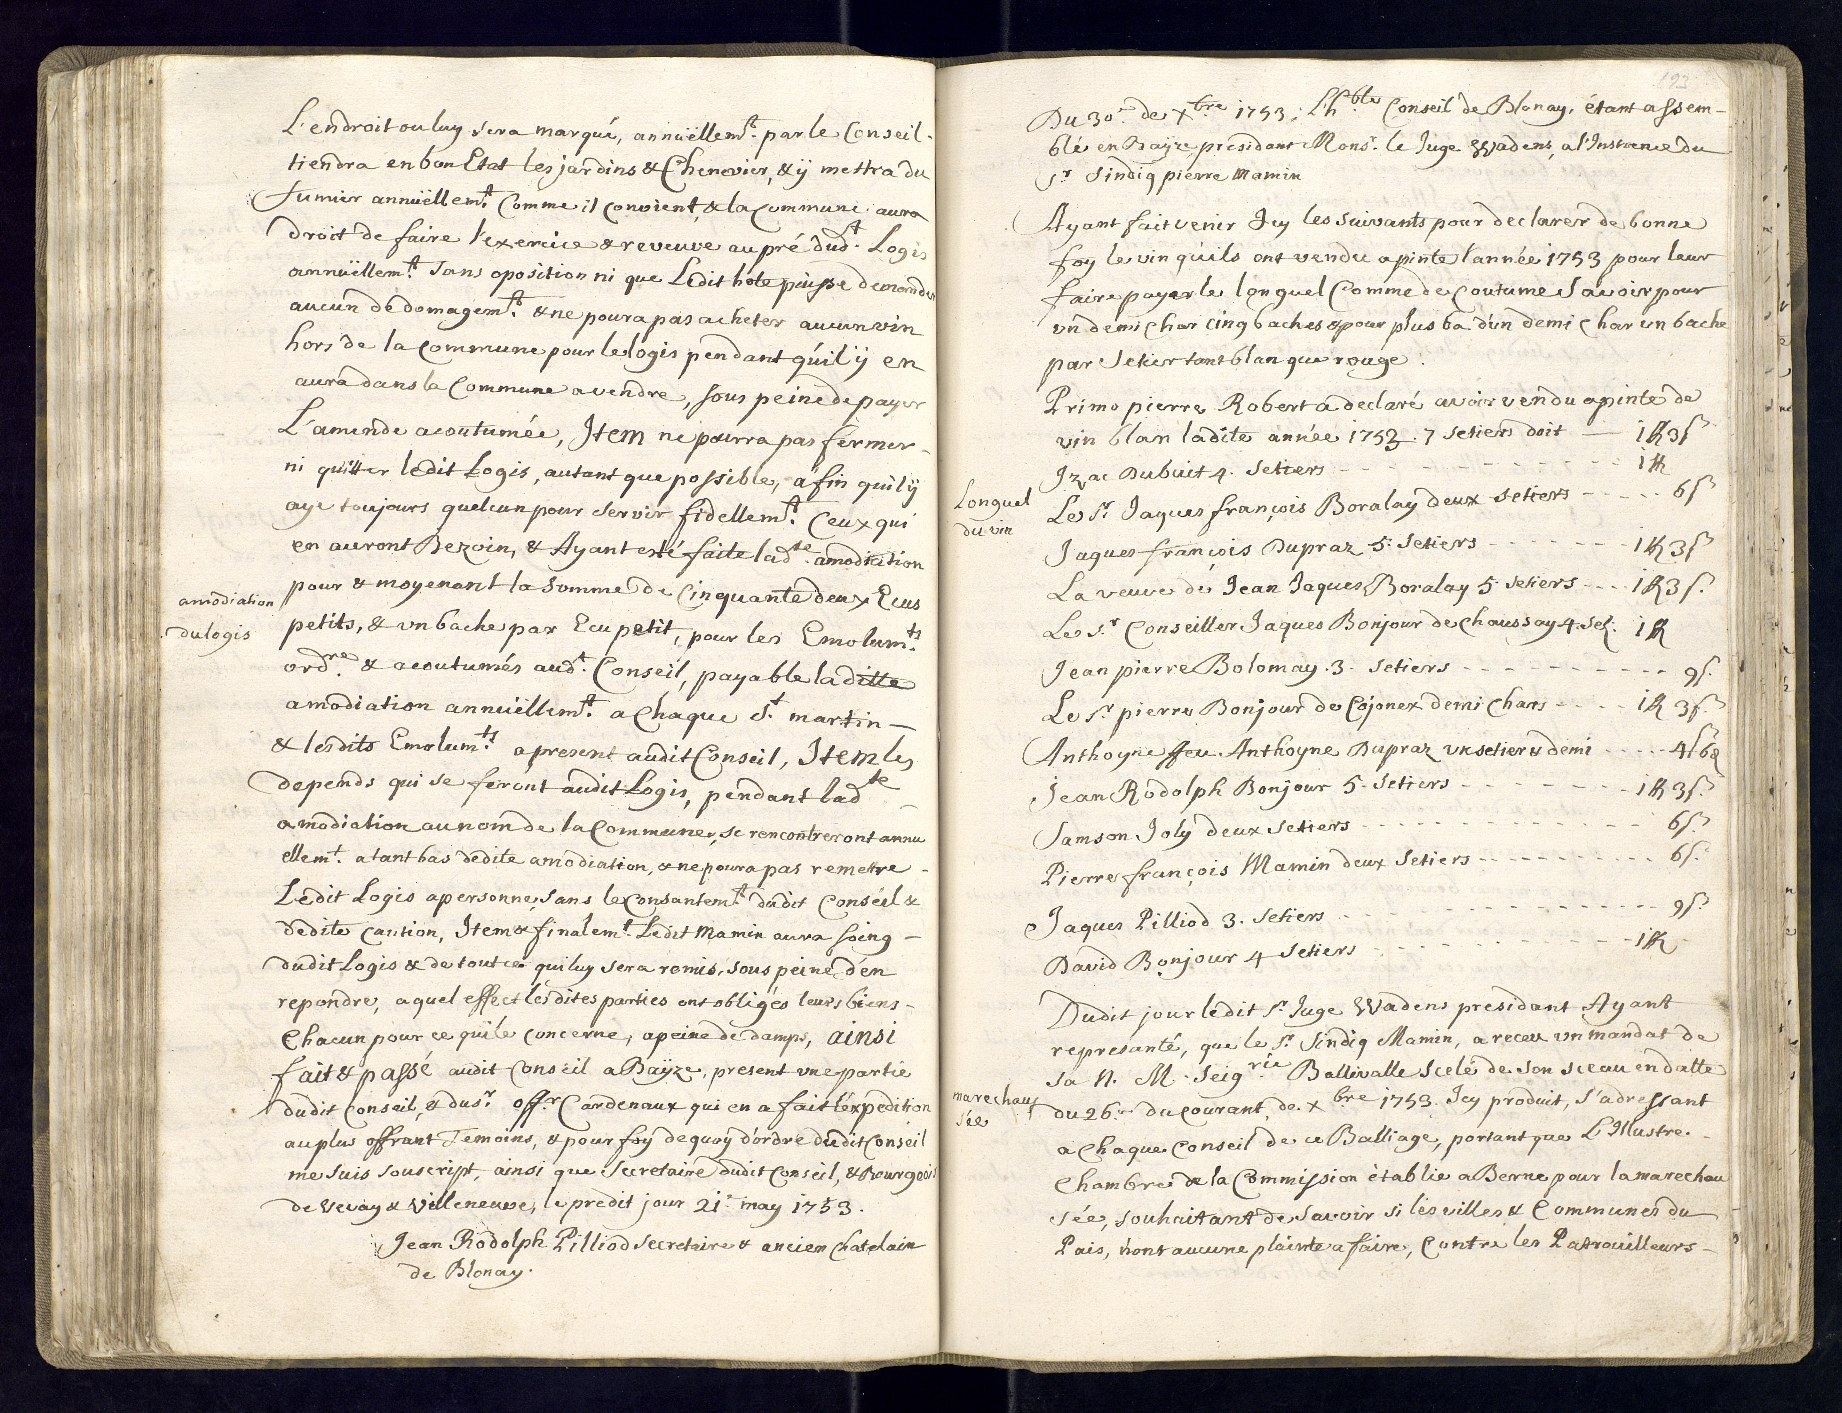 L'endroit ou luy sera marqué, annüellemt. par le Conseil.
tiendra en bon Etat les jardins & Chenevier, & ÿ mettra du
fumier annüellemt. Comme il convient, & la Commune aura
droit de faire l'exercice & reveuve au pré dudt. Logis
annüellemt. Sans oposition ni que Ledit hote puisse demander
aucun dédomagemt. & ne poura pas acheter aucun vin
hors de la Commune pour le logis pendant qu'il ÿ en
aura dans la Commune a vendre, sous peine de payer
L'amende acoutumée, Item ne pourra pas fermer
ni quitter ledit Logis, autant que possible, afin quil ÿ
aye toujours quelcun pour servir fidellemt. Ceux qui
en auront Bezoin, & Ayant esté faite ladte. amodiation
pour & moyenant la somme de Cinquante deux Ecus
petits, & un bache par Ecu petit, pour les Emolumts.
ordre. & acoutumés audt. Conseil, payable laditte
amodiation annüellemt. a Chaque St. martin —
& lesdits Emolumts. apresent audit Conseil, Item les
depends qui se feront audit Logis, pendant ladte
amodiation au nom de la Commune, se rencontreront annu
ellemt. a tant bas dedite amodiation, & ne poura pas remettre
Ledit Logis a personne, sans le Consantemt. dudit Conseil &
dedite Caution, Item & finalemt. Ledit Mamin aura soing —
dudit Logis & de tout ce qui luy sera remis, sous peine d'en
repondre, a quel effect lesdites parties ont obligés leurs biens —
Chacun pour ce qui le concerne, a peine de damps, ainsi
fait & passé audit Conseil a Baÿze, present une partie
dudit Conseil, & du sr. offr. Cardenaux qui en a fait l'éxpedition
au plus offrant Temoins, & pour foÿ dequoy d'ordre dudit Conseil
me suis souscript, ainsi que Secretaire dudit Conseil, & Bourgeois
de Vevay & Villeneuve, le predit jour 21e. may 1753.
Jean Rodolph Pilliod Secretaire & ancien Chatelain
de Blonay.
amodiation
du logis
193
Du 30e. de Xbre 1753, L'hble Conseil de Blonay, étant assem—
blé en Baÿze, présidant Monsr. le Juge Wadens, a l'Instence du
Sr Sindiq pierre Mamin
Ayant fait venir Icy les suivants pour declarer de bonne
foy le vin qu'ils ont vendu a pinte l'année 1753 pour leur
faire payer le longuel Comme de Coutume Savoir pour
un demi Char cinq baches & pour plus ba d'un demi Char un bache
par Setier tant blan que rouge.
Primo pierre Robert a declaré avoir vendu a pinte de
vin blan ladite année 1753. 7 Setiers doit — 1 ff 3 s.
Izac Dubuit 4. Setiers 1 ff
Le Sr. Jaques françois Boralay deux setiers 6 s.
Jaques françois Dupraz 5. Setiers 1 ff 3 s
La veuve de Jean Jaques Boralay 5 Setiers 1 ff 3 s.
Le Sr. Conseiller Jaques Bonjour de Chaussay 4. Set. 1 ff
Jean pierre Bolomay. 3. Setiers 9 s.
Le Sr. pierre Bonjour de Cojonex demi Chars 1 ff 3 s.
Anthoyne ffeu Anthoyne Dupraz un setier & demi 4 s 6 d
Jean Rodolph Bonjour 5. Setiers 1 ff 3 s.
Samson Joly deux Setiers 6 s.
Pierre françois Mamin deux Setiers 6 s.
Jaques Pilliod 3. Setiers 9 s.
David Bonjour 4 Setiers 1 ff
Longuel
du vin
Dudit jour ledit Sr. Juge Wadens presidant Ayant
represanté, que le Sr. Sindiq Mamin, a receu un mandat de
Sa N. M. Seigrie Ballivalle Scelé de son sceau en datte
du 26e. du courant, de xbre 1753. Icy produit, s'adressant
a Chaque Conseil de ce Balliage, portant que L'Illustre.
Chambre de la Commission établie a Berne pour la marechau
sée, souhaitant de savoir si les villes & Communes du
Pais, n'ont aucune plainte a faire, Contre les Patrouilleurs —
marechaus
sée